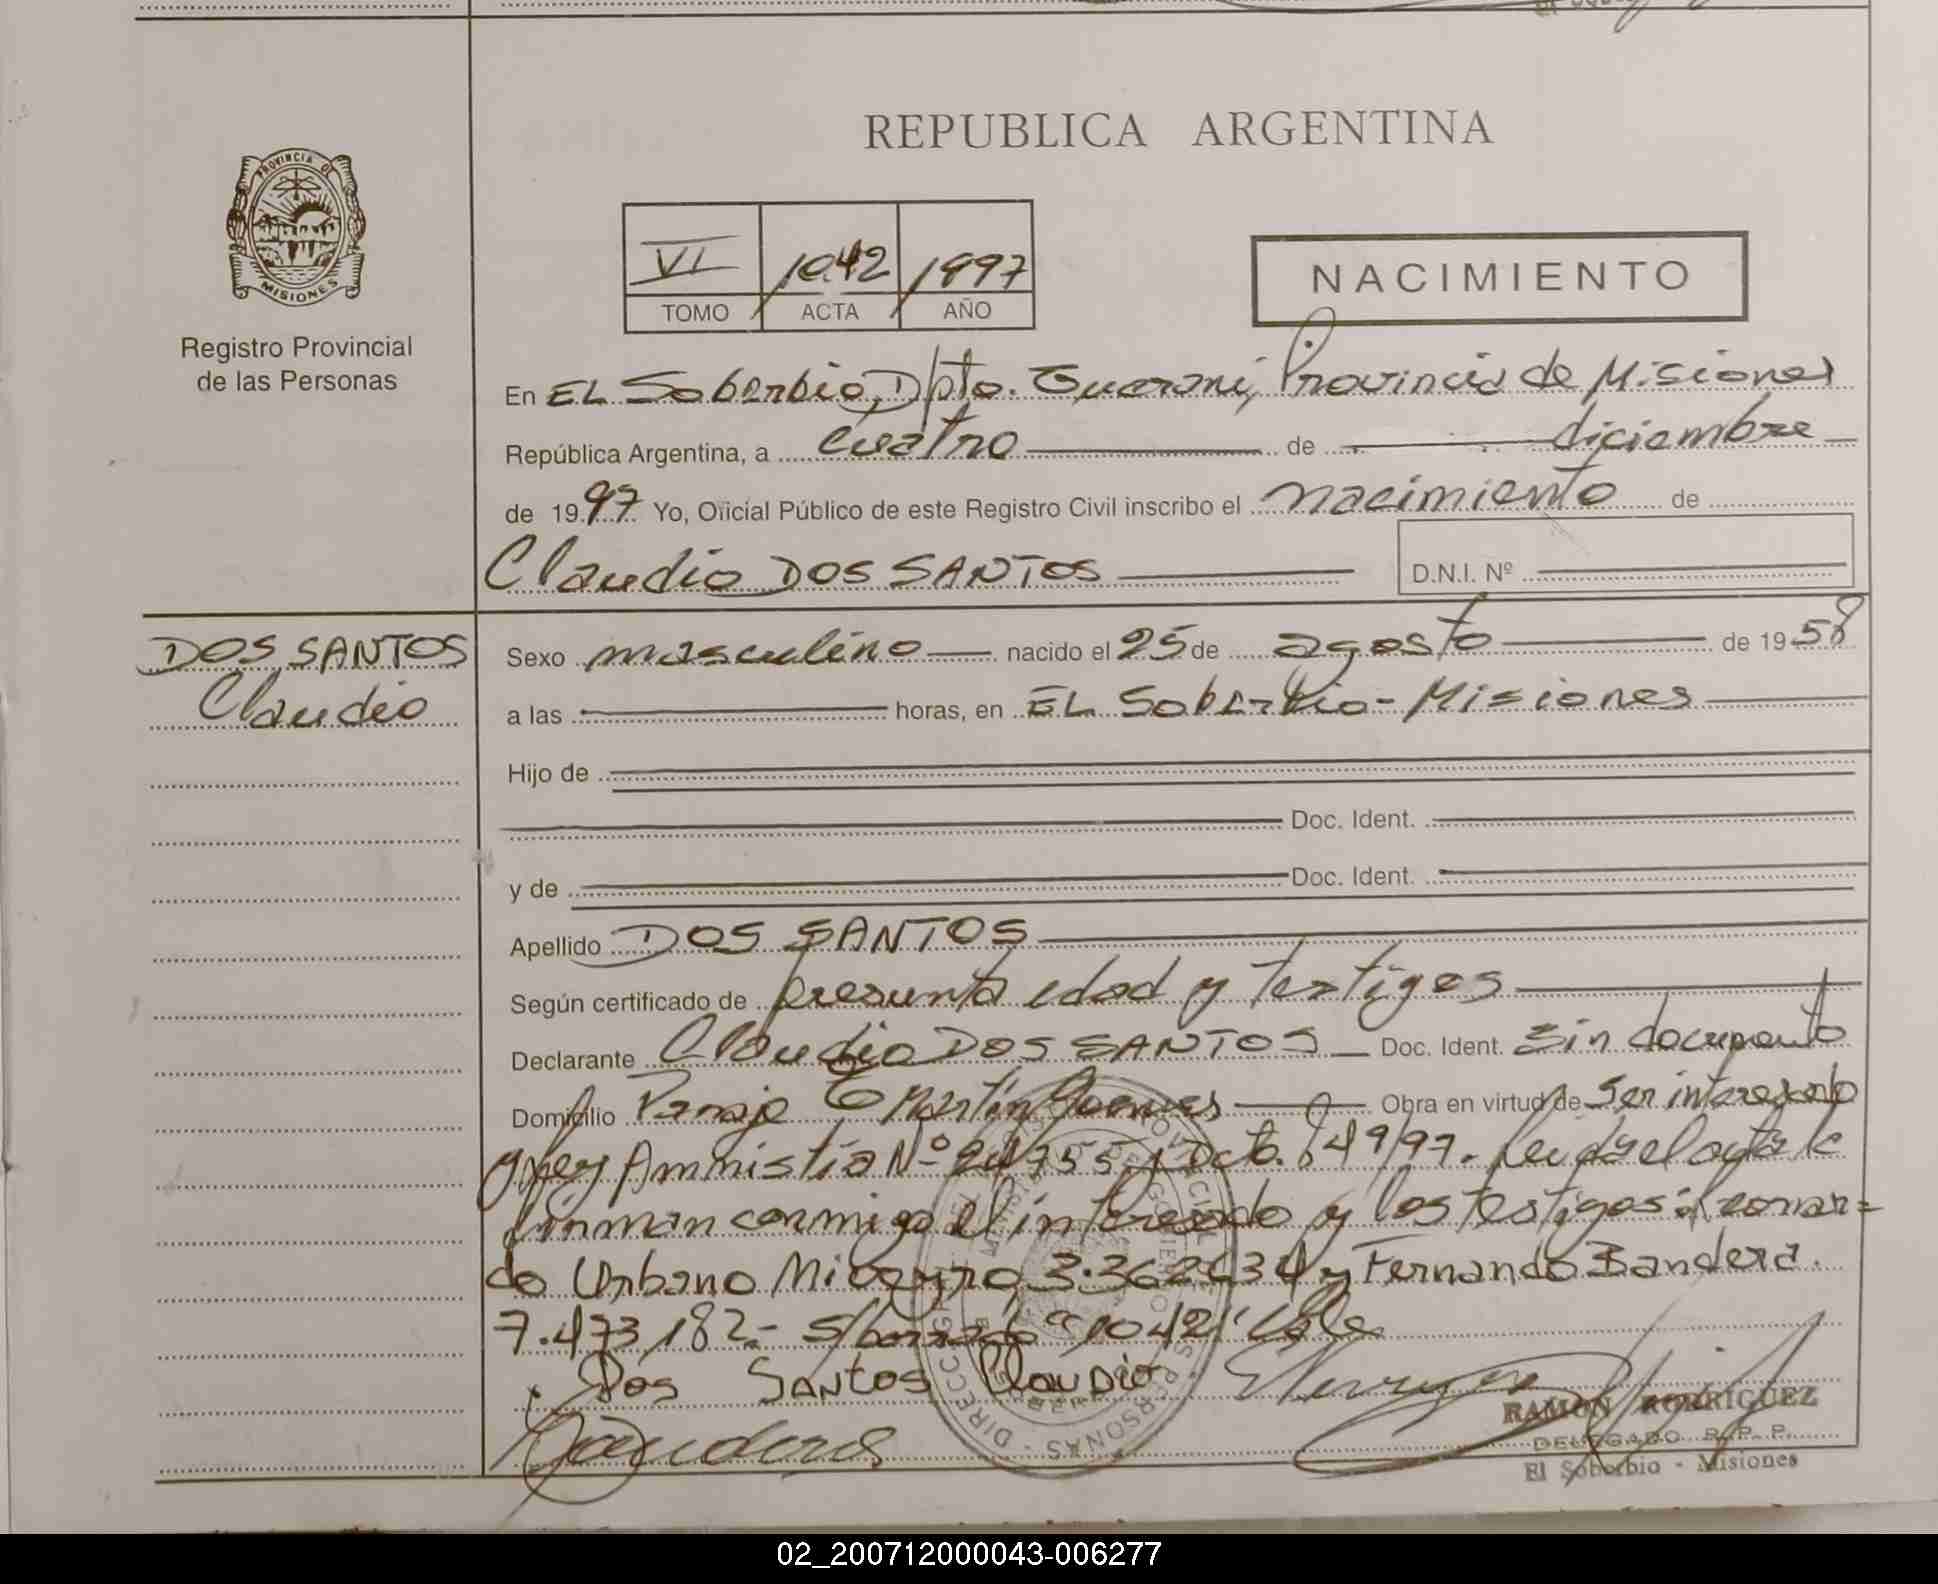 REPUBLICA ARGENTINA
PROVINCIA DE
MISIONES
Registro Provincial
de las Personas
VI 1042 1997
TOMO ACTA AÑO
NACIMIENTO
En EL Soberbio, Dpto. Guarani, Provincia de Misiones
República Argentina, a cuatro de diciembre
de 1997 Yo, Oficial Público de este Registro Civil inscribo el nacimiento de
Claudio DOS SANTOS
D.N.I. Nº
DOS SANTOS
Claudio
Sexo masculino nacido el 25 de agosto de 1958
a las horas, en EL Soberbio - Misiones
Hijo de
Doc. Ident.
y de Doc. Ident.
Apellido DOS SANTOS
Según certificado de presunta edad y testigos
Declarante Claudio DOS SANTOS Doc. Ident. Sin documento
Domicilio Paraje Martín Obra en virtud de Ser interesado
y Ley Amnistía Nº 24755 y Dcto. 849/97. Leida el acta le
firman conmigo el interesado y los testigos: Leonar=
do Urbano 3.362.634 y Fernando Bandera.
7.473.182.- S/borrado "1042" Vale
Dos Santos Claudio
RAMON RODRIGUEZ
DELEGADO R. P. P.
El Soberbio - Misiones
02_200712000043-006277